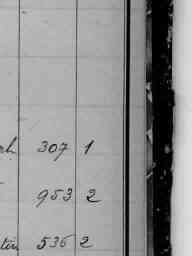 307 1
953 2
536 2